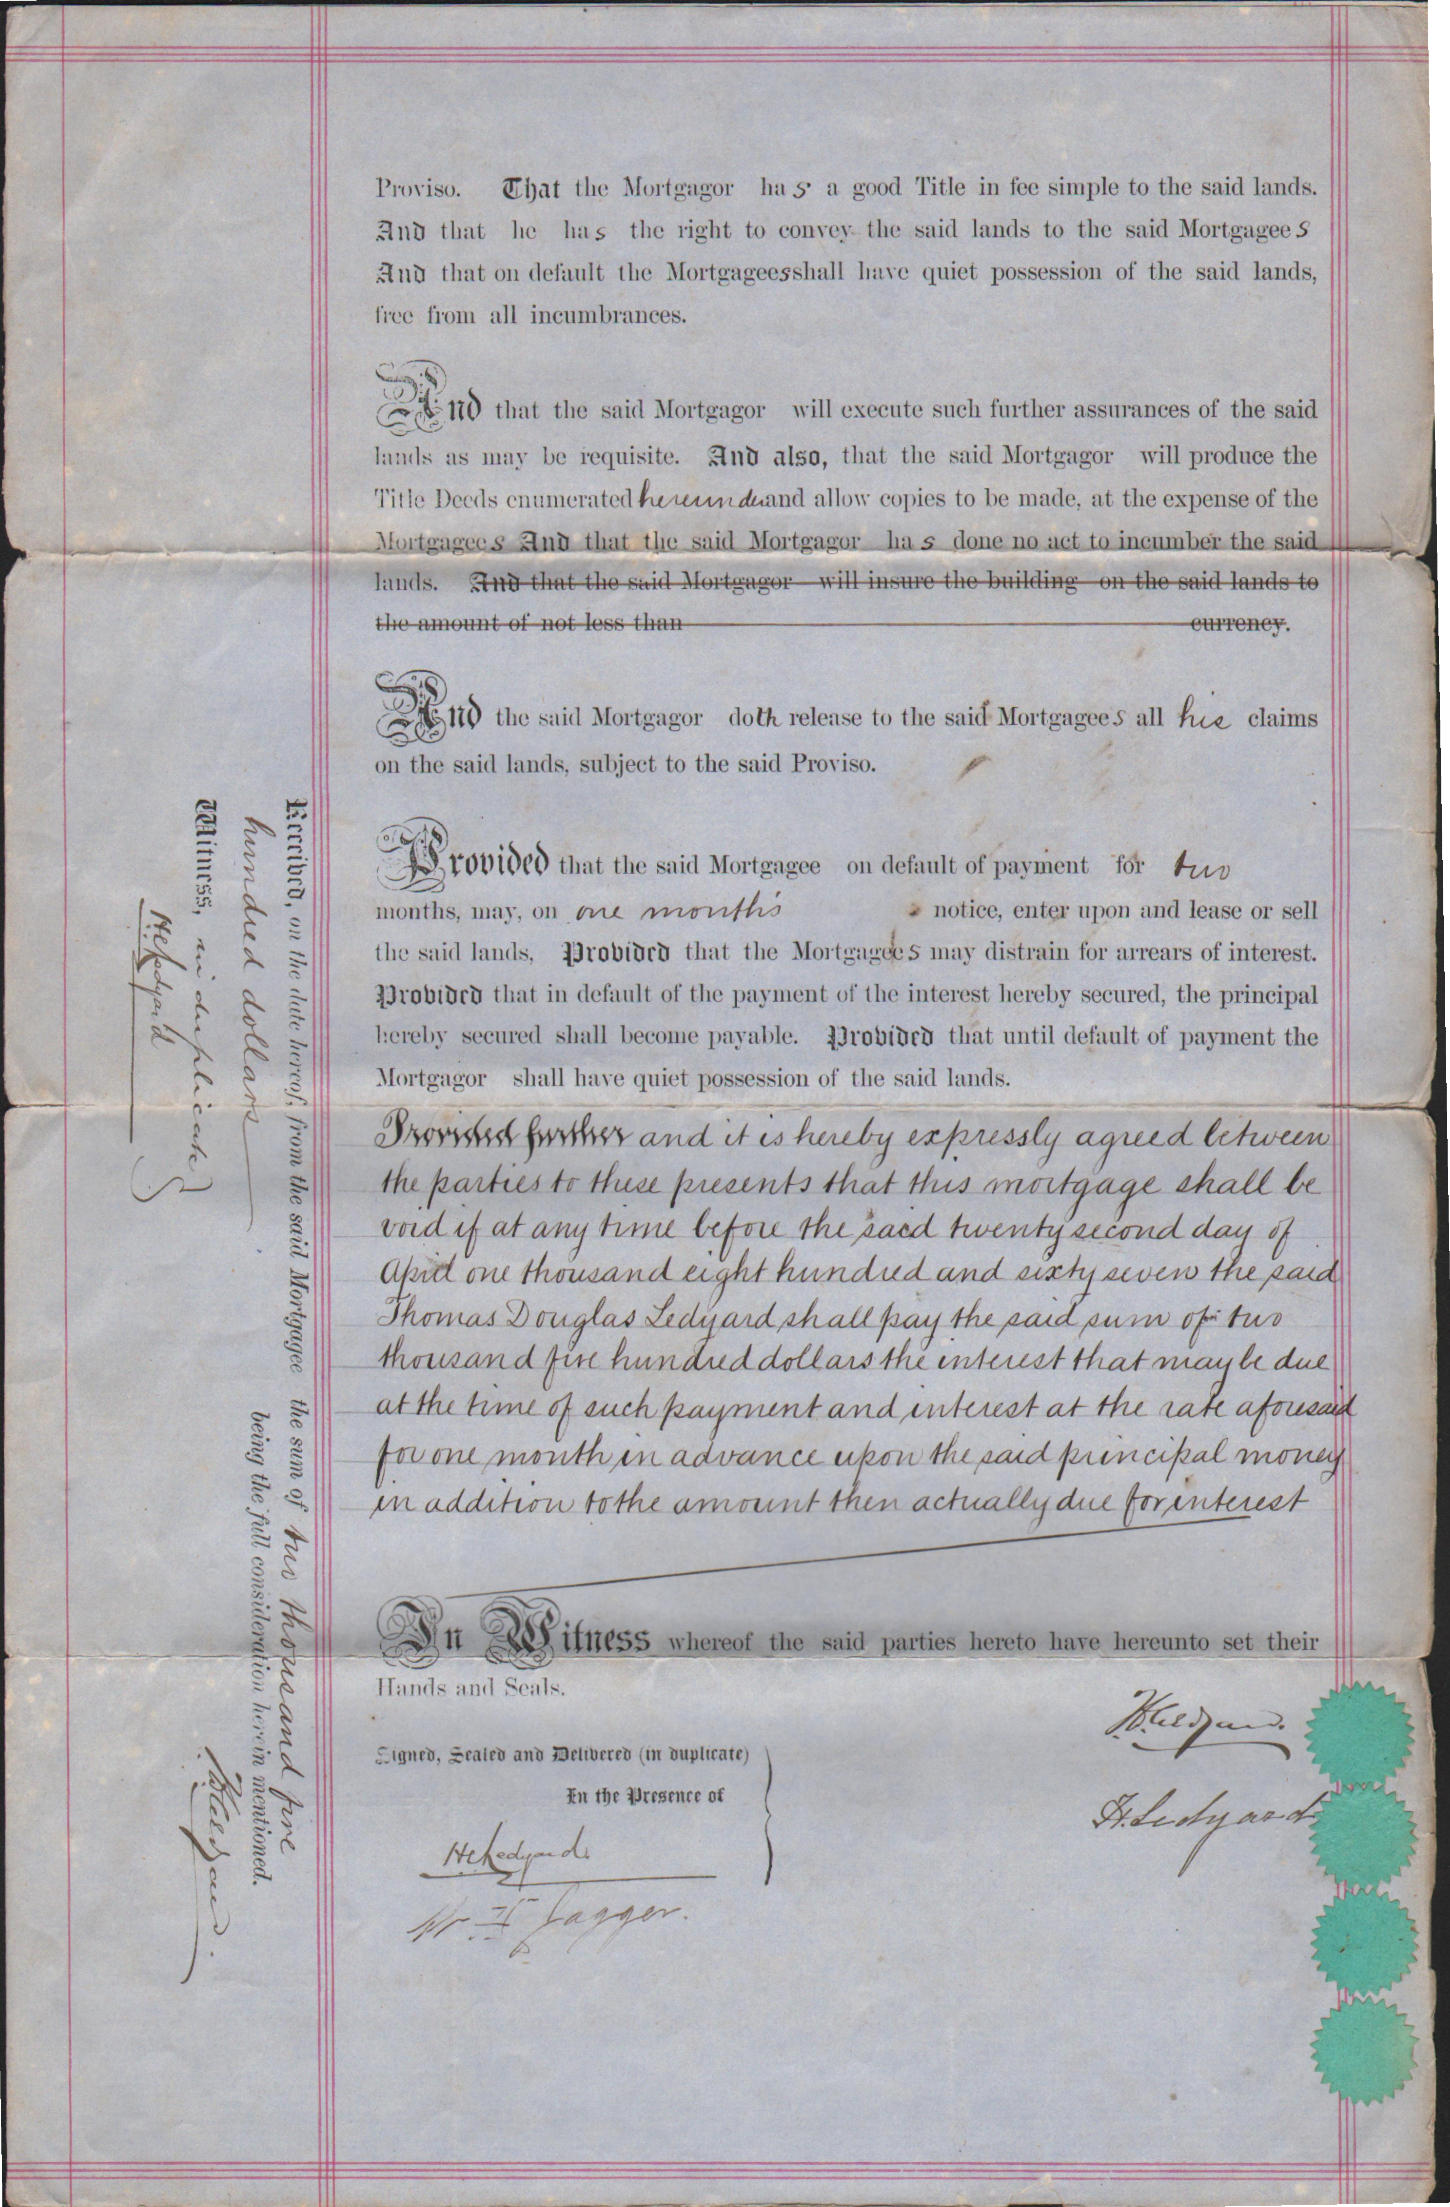 Proviso. That the Mortgagor has a good Title in fee simple to the said lands.
And that he has the right to convey the said lands to the said Mortgagees
And that on default the Mortgagees shall have quiet possession of the said lands,
free from all incumbrances.
And that the said Mortgagor will execute such further assurances of the said
lands as may be requisite. And also, that the said Mortgagor will produce the
Title Deeds enumerated hereunder and allow copies to be made, at the expense of the
Mortgagees And that the said Mortgagor has done no act to incumber the said
lands. And that the said Mortgagor will insure the building on the said lands to
the amount of not less than currency.
And the said Mortgagor doth release to the said Mortgagees all his claims
on the said lands, subject to the said Proviso.
Provided that the said Mortgagee on default of payment for two
months, may, on one months notice, enter upon and lease or sell
the said lands, Provided that the Mortgagees may distrain for arrears of interest.
Provided that in default of the payment of the interest hereby secured, the principal
hereby secured shall become payable. Provided that until default of payment the
Mortgagor shall have quiet possession of the said lands.
Provided further and it is hereby expressly agreed between
the parties to these presents that this mortgage shall be
void if at any time before the said twenty second day of
April one thousand eight hundred and sixty seven the said
Thomas Douglas Ledyard shall pay the said sum of two
thousand five hundred dollars the interest that may be due
at the time of such payment and interest at the rate aforesaid
for one month in advance upon the said principal money
in addition to the amount then actually due for interest
In Witness whereof the said parties hereto have hereunto set their
Hands and Seals.
Signed, Sealed and Delivered (in duplicate)
In the Presence of
Ledyard
Jagger.
H. Ledyard
Received, on the date hereof, from the said Mortgagee the sum of two thousand five
hundred dollars being the full consideration herein mentioned.
Witness, in duplicate
Ledyard